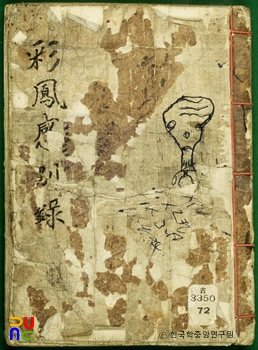 彩鳳感別錄
古
3350
72
© 한국학중앙연구원